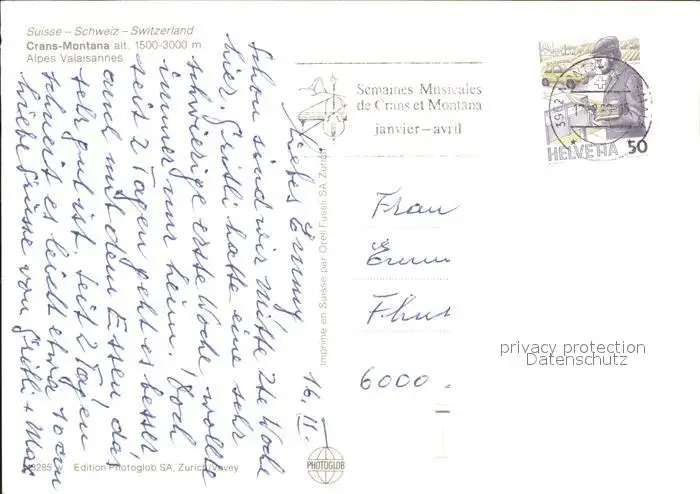 Suisse – Schweiz – Switzerland
Crans-Montana alt. 1500-3000 m
Alpes Valaisannes
16. II.
Liebes Emmy
Schon sind wir Mitte 2te Woche
hier. Gritli hatte eine sehr
schwierige erste Woche wollte
immer nur heim. Doch
seit 2 Tagen geht es besser
auch mit dem Essen, das
sehr gut ist. Seit 2 Tagen
schneit es leicht etwa 10 cm
Liebe Grüsse von Gritli + Max
Edition Photoglob SA, Zürich/Vevey
Imprimé en Suisse par Orell Füssli SA Zurich
PHOTOGLOB
Semaines Musicales
de Crans et Montana
janvier – avril
3962
HELVETIA 50
Frau
6000
privacy protection
Datenschutz